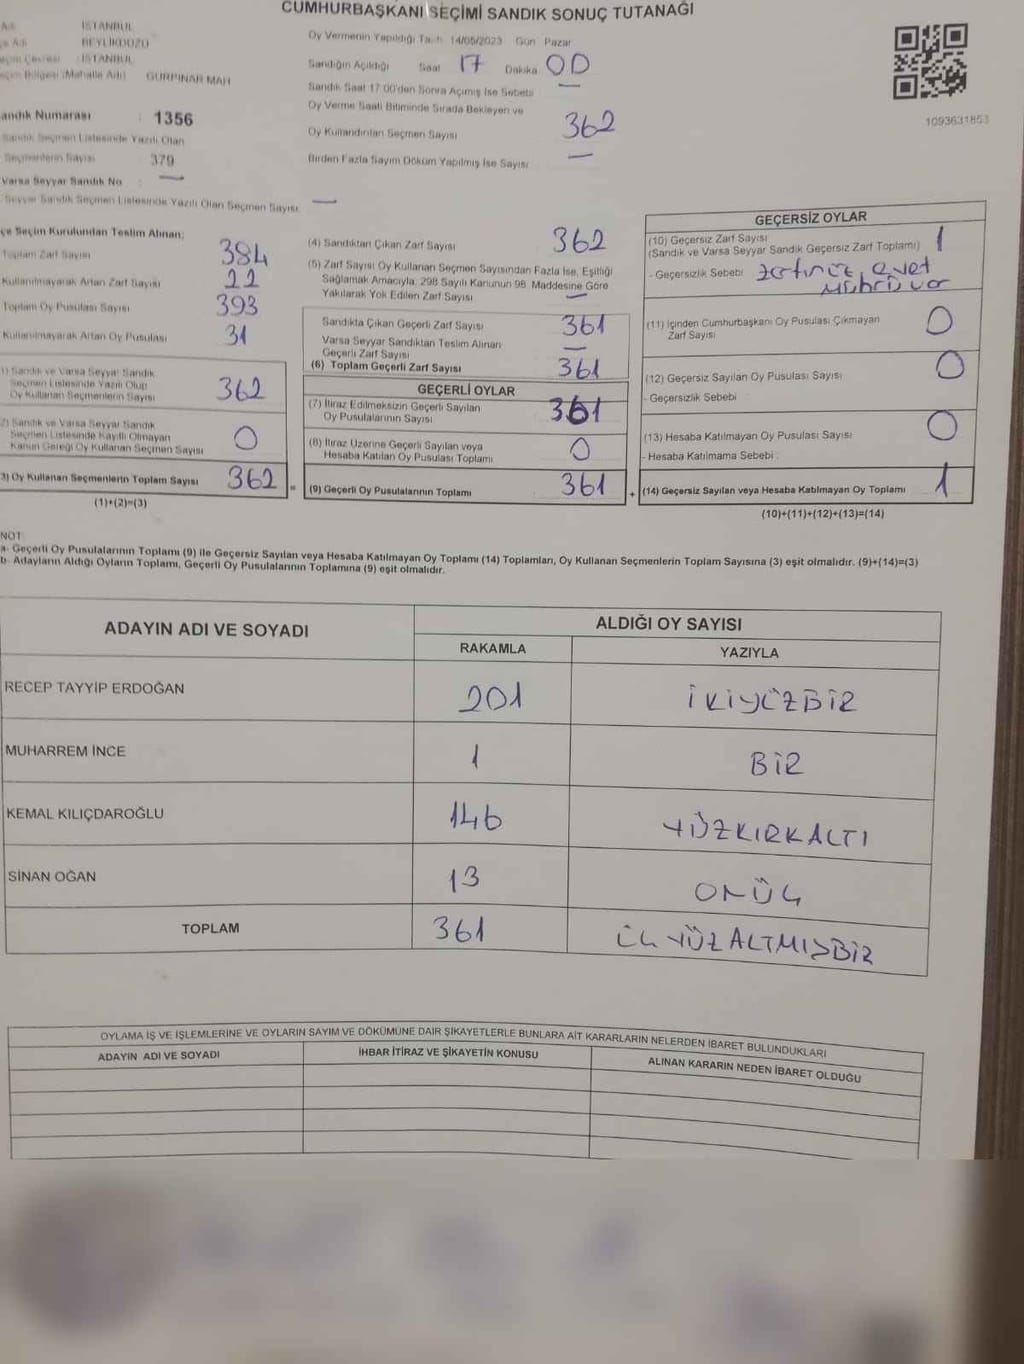 CUMHURBAŞKANI SEÇİMİ SANDIK SONUÇ TUTANAĞI
İSTANBUL
BEYLİKDÜZÜ
İSTANBUL
Seçim Bölgesi (Mahalle Adı) GÜRPINAR MAH
Oy Vermenin Yapıldığı Tarih 14/05/2023 Gün Pazar
Sandığın Açıldığı Saat 17 Dakika 00
Sandık Saat 17:00'den Sonra Açımış İse Sebebi —
Oy Verme Saati Bitiminde Sırada Bekleyen ve
Oy Kullandırılan Seçmen Sayısı 362
Birden Fazla Sayım Döküm Yapılmış İse Sayısı —
1093631853
Sandık Numarası : 1356
Sandık Seçmen Listesinde Yazılı Olan
Seçmenlerin Sayısı : 379
Varsa Seyyar Sandık No : —
Seyyar Sandık Seçmen Listesinde Yazılı Olan Seçmen Sayısı —
İlçe Seçim Kurulundan Teslim Alınan;
Toplam Zarf Sayısı 384
Kullanılmayarak Artan Zarf Sayısı 22
Toplam Oy Pusulası Sayısı 393
Kullanılmayarak Artan Oy Pusulası 31
(1) Sandık ve Varsa Seyyar Sandık
Seçmen Listesinde Yazılı Olup
Oy Kullanan Seçmenlerin Sayısı 362
(2) Sandık ve Varsa Seyyar Sandık
Seçmen Listesinde Kayıtlı Olmayan
Kanun Gereği Oy Kullanan Seçmen Sayısı 0
(3) Oy Kullanan Seçmenlerin Toplam Sayısı 362 =
(1)+(2)=(3)
(4) Sandıktan Çıkan Zarf Sayısı 362
(5) Zarf Sayısı Oy Kullanan Seçmen Sayısından Fazla İse, Eşitliği
Sağlamak Amacıyla, 298 Sayılı Kanunun 98. Maddesine Göre
Yakılarak Yok Edilen Zarf Sayısı —
Sandıkta Çıkan Geçerli Zarf Sayısı 361
Varsa Seyyar Sandıktan Teslim Alınan
Geçerli Zarf Sayısı —
(6) Toplam Geçerli Zarf Sayısı 361
GEÇERLİ OYLAR
(7) İtiraz Edilmeksizin Geçerli Sayılan
Oy Pusulalarının Sayısı 361
(8) İtiraz Üzerine Geçerli Sayılan veya
Hesaba Katılan Oy Pusulası Toplamı 0
(9) Geçerli Oy Pusulalarının Toplamı 361 +
GEÇERSİZ OYLAR
(10) Geçersiz Zarf Sayısı 1
(Sandık ve Varsa Seyyar Sandık Geçersiz Zarf Toplamı)
- Geçersizlik Sebebi evet
mührü var
(11) İçinden Cumhurbaşkanı Oy Pusulası Çıkmayan
Zarf Sayısı 0
(12) Geçersiz Sayılan Oy Pusulası Sayısı 0
- Geçersizlik Sebebi :
(13) Hesaba Katılmayan Oy Pusulası Sayısı 0
- Hesaba Katılmama Sebebi :
(14) Geçersiz Sayılan veya Hesaba Katılmayan Oy Toplamı 1
(10)+(11)+(12)+(13)=(14)
NOT:
a- Geçerli Oy Pusulalarının Toplamı (9) ile Geçersiz Sayılan veya Hesaba Katılmayan Oy Toplamı (14) Toplamları, Oy Kullanan Seçmenlerin Toplam Sayısına (3) eşit olmalıdır. (9)+(14)=(3)
b- Adayların Aldığı Oyların Toplamı, Geçerli Oy Pusulalarının Toplamına (9) eşit olmalıdır.
ADAYIN ADI VE SOYADI ALDIĞI OY SAYISI
RAKAMLA YAZIYLA
RECEP TAYYİP ERDOĞAN 201 İKİYÜZBİR
MUHARREM İNCE 1 BİR
KEMAL KILIÇDAROĞLU 146 YÜZKIRKALTI
SİNAN OĞAN 13 ONÜÇ
TOPLAM 361 ÜÇYÜZALTMIŞBİR
OYLAMA İŞ VE İŞLEMLERİNE VE OYLARIN SAYIM VE DÖKÜMÜNE DAİR ŞİKAYETLERLE BUNLARA AİT KARARLARIN NELERDEN İBARET BULUNDUKLARI
ADAYIN ADI VE SOYADI İHBAR İTİRAZ VE ŞİKAYETİN KONUSU ALINAN KARARIN NEDEN İBARET OLDUĞU